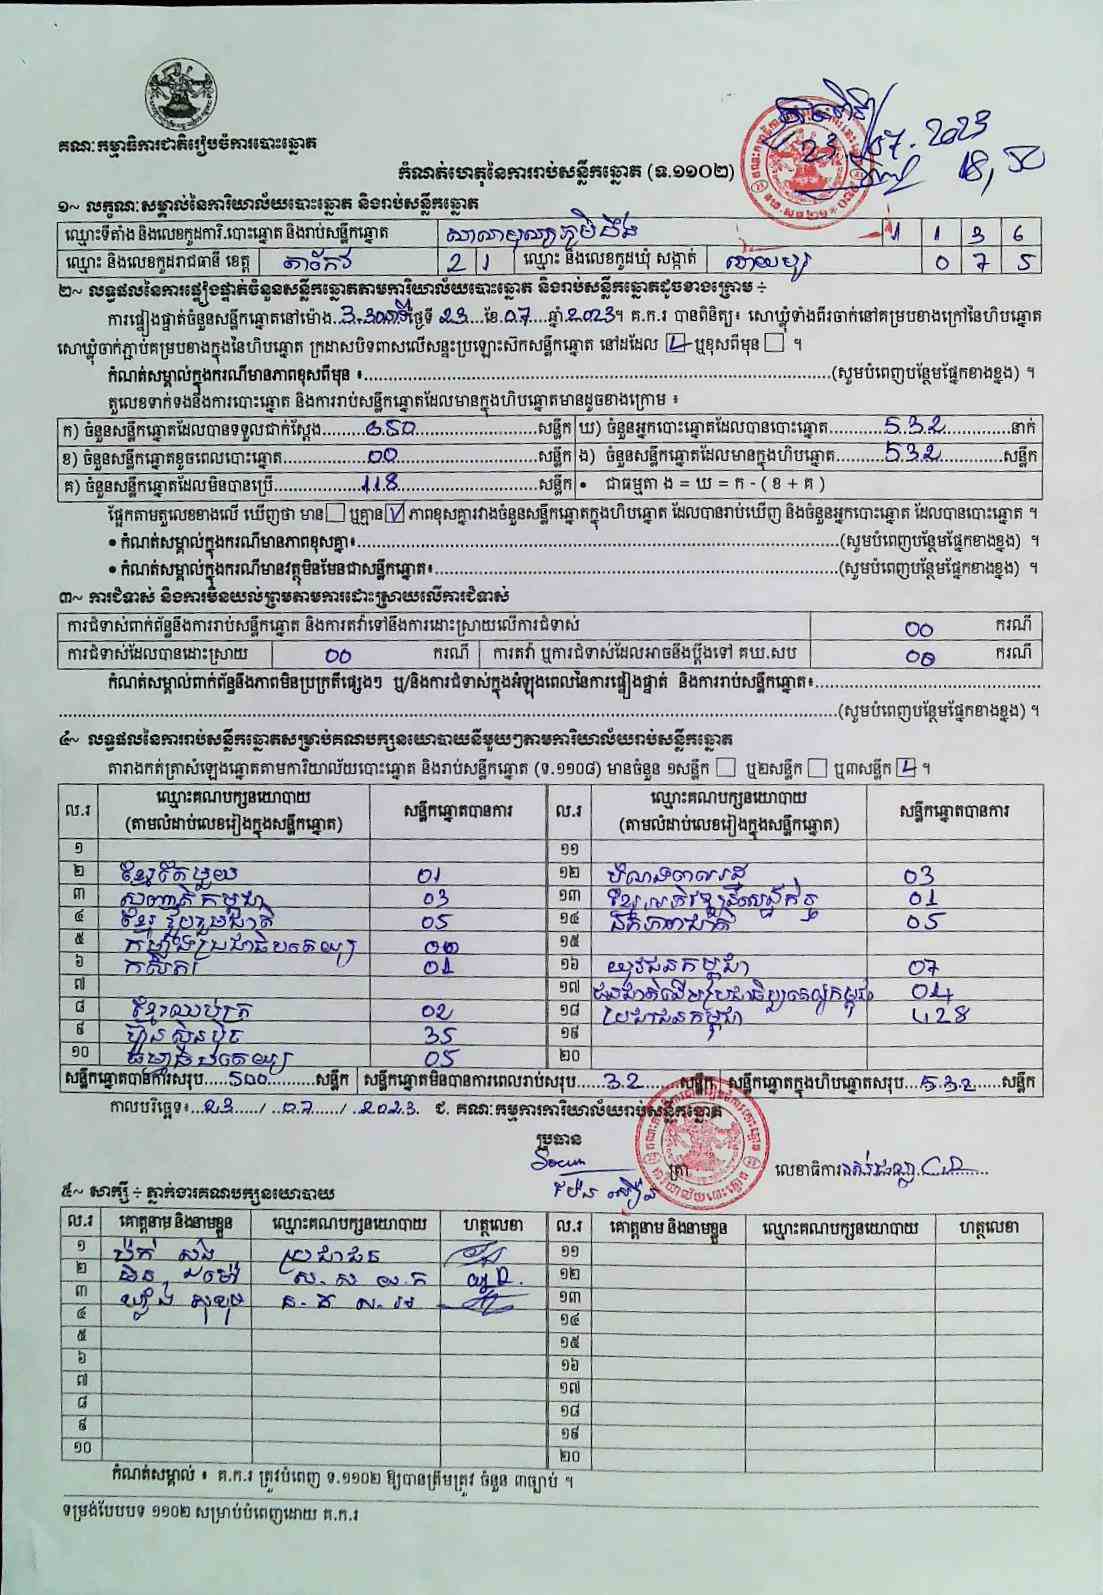 គណៈកម្មាធិការជាតិរៀបចំការបោះឆ្នោត
23/07.2023
18,50
កំណត់ហេតុនៃការរាប់សន្លឹកឆ្នោត (ទ.១១០២)
១~ លក្ខណៈសម្គាល់នៃការិយាល័យបោះឆ្នោត និងរាប់សន្លឹកឆ្នោត
ឈ្មោះទីតាំង និងលេខកូដការិ.បោះឆ្នោត និងរាប់សន្លឹកឆ្នោត 1 1 3 6
ឈ្មោះ និងលេខកូដរាជធានី ខេត្ត តាកែវ 2 1 ឈ្មោះ និងលេខកូដឃុំ សង្កាត់ 0 7 5
២~ លទ្ធផលនៃការផ្ទៀងផ្ទាត់ចំនួនសន្លឹកឆ្នោតតាមការិយាល័យបោះឆ្នោត និងរាប់សន្លឹកឆ្នោតដូចខាងក្រោម ÷
ការផ្ទៀងផ្ទាត់ចំនួនសន្លឹកឆ្នោតនៅម៉ោង 3:30នាទី ថ្ងៃទី 23 ខែ 07 ឆ្នាំ 2023។ គ.ក.រ បានពិនិត្យ៖ សោឃ្លុំទាំងពីរចាក់នៅគម្របខាងក្រៅនៃហិបឆ្នោត
សោឃ្លុំចាក់ភ្ជាប់គម្របខាងក្នុងនៃហិបឆ្នោត ក្រដាសបិទពាសលើសន្ទះប្រឡោះស៊កសន្លឹកឆ្នោត នៅដដែល ឬខុសពីមុន ។
កំណត់សម្គាល់ក្នុងករណីមានភាពខុសពីមុន ៖ (សូមបំពេញបន្ថែមផ្នែកខាងខ្នង) ។
តួលេខទាក់ទងនឹងការបោះឆ្នោត និងការរាប់សន្លឹកឆ្នោតដែលមានក្នុងហិបឆ្នោតមានដូចខាងក្រោម ៖
ក) ចំនួនសន្លឹកឆ្នោតដែលបានទទួលជាក់ស្តែង 650 សន្លឹក ឃ) ចំនួនអ្នកបោះឆ្នោតដែលបានបោះឆ្នោត 532 នាក់
ខ) ចំនួនសន្លឹកឆ្នោតខូចពេលបោះឆ្នោត 00 សន្លឹក ង) ចំនួនសន្លឹកឆ្នោតដែលមានក្នុងហិបឆ្នោត 532 សន្លឹក
គ) ចំនួនសន្លឹកឆ្នោតដែលមិនបានប្រើ 118 សន្លឹក • ជាធម្មតា ង = ឃ = ក - ( ខ + គ )
ផ្អែកតាមតួលេខខាងលើ ឃើញថា មាន ឬគ្មាន ភាពខុសគ្នារវាងចំនួនសន្លឹកឆ្នោតក្នុងហិបឆ្នោត ដែលបានរាប់ឃើញ និងចំនួនអ្នកបោះឆ្នោត ដែលបានបោះឆ្នោត ។
• កំណត់សម្គាល់ក្នុងករណីមានភាពខុសគ្នា៖ (សូមបំពេញបន្ថែមផ្នែកខាងខ្នង) ។
• កំណត់សម្គាល់ក្នុងករណីមានវត្ថុមិនមែនជាសន្លឹកឆ្នោត៖ (សូមបំពេញបន្ថែមផ្នែកខាងខ្នង) ។
៣~ ការជំទាស់ និងការមិនយល់ព្រមតាមការដោះស្រាយលើការជំទាស់
ការជំទាស់ពាក់ព័ន្ធនឹងការរាប់សន្លឹកឆ្នោត និងការតវ៉ាទៅនឹងការដោះស្រាយលើការជំទាស់ 00 ករណី
ការជំទាស់ដែលបានដោះស្រាយ 00 ករណី ការតវ៉ា ឬការជំទាស់ដែលអាចនឹងប្តឹងទៅ គឃ.សប 00 ករណី
កំណត់សម្គាល់ពាក់ព័ន្ធនឹងភាពមិនប្រក្រតីផ្សេងៗ ឬ/និងការជំទាស់ក្នុងអំឡុងពេលនៃការផ្ទៀងផ្ទាត់ និងការរាប់សន្លឹកឆ្នោត៖
(សូមបំពេញបន្ថែមផ្នែកខាងខ្នង) ។
៤~ លទ្ធផលនៃការរាប់សន្លឹកឆ្នោតសម្រាប់គណបក្សនយោបាយនីមួយៗតាមការិយាល័យរាប់សន្លឹកឆ្នោត
តារាងកត់ត្រាសំឡេងឆ្នោតតាមការិយាល័យបោះឆ្នោត និងរាប់សន្លឹកឆ្នោត (ទ.១១០៨) មានចំនួន ១សន្លឹក ឬ២សន្លឹក ឬ៣សន្លឹក ។
ល.រ ឈ្មោះគណបក្សនយោបាយ (តាមលំដាប់លេខរៀងក្នុងសន្លឹកឆ្នោត) សន្លឹកឆ្នោតបានការ ល.រ ឈ្មោះគណបក្សនយោបាយ (តាមលំដាប់លេខរៀងក្នុងសន្លឹកឆ្នោត) សន្លឹកឆ្នោតបានការ
១ ១១
២ ខ្មែរតែមួយ 01 ១២ 03
៣ សញ្ជាតិកម្ពុជា 03 ១៣ ខ្មែរអភិវឌ្ឍន៍សេដ្ឋកិច្ច 01
៤ ខ្មែររួបរួមជាតិ 05 ១៤ 05
៥ កម្លាំងប្រជាធិបតេយ្យ 00 ១៥
៦ កសិករ 01 ១៦ យុវជនកម្ពុជា 07
៧ ១៧ 04
៨ ខ្មែរឈប់ក្រ 02 ១៨ ប្រជាជនកម្ពុជា 428
៩ ហ៊្វុនស៊ិនប៉ិច 35 ១៩
១០ ធម្មាធិបតេយ្យ 05 ២០
សន្លឹកឆ្នោតបានការសរុប 500 សន្លឹក សន្លឹកឆ្នោតមិនបានការពេលរាប់សរុប 32 សន្លឹក សន្លឹកឆ្នោតក្នុងហិបឆ្នោតសរុប 532 សន្លឹក
កាលបរិច្ឆេទ៖ 23 / 07 / 2023 ជ. គណៈកម្មការការិយាល័យរាប់សន្លឹកឆ្នោត
ប្រធាន
ត្រា លេខាធិការ
៥~ សាក្សី ÷ ភ្នាក់ងារគណបក្សនយោបាយ
ល.រ គោត្តនាម និងនាមខ្លួន ឈ្មោះគណបក្សនយោបាយ ហត្ថលេខា ល.រ គោត្តនាម និងនាមខ្លួន ឈ្មោះគណបក្សនយោបាយ ហត្ថលេខា
១ ប្រជាជន ១១
២ ស.ស យ.ក ១២
៣ ១៣
៤ ១៤
៥ ១៥
៦ ១៦
៧ ១៧
៨ ១៨
៩ ១៩
១០ ២០
កំណត់សម្គាល់ ៖ គ.ក.រ ត្រូវបំពេញ ទ.១១០២ ឱ្យបានត្រឹមត្រូវ ចំនួន ៣ច្បាប់ ។
ទម្រង់បែបបទ ១១០២ សម្រាប់បំពេញដោយ គ.ក.រ